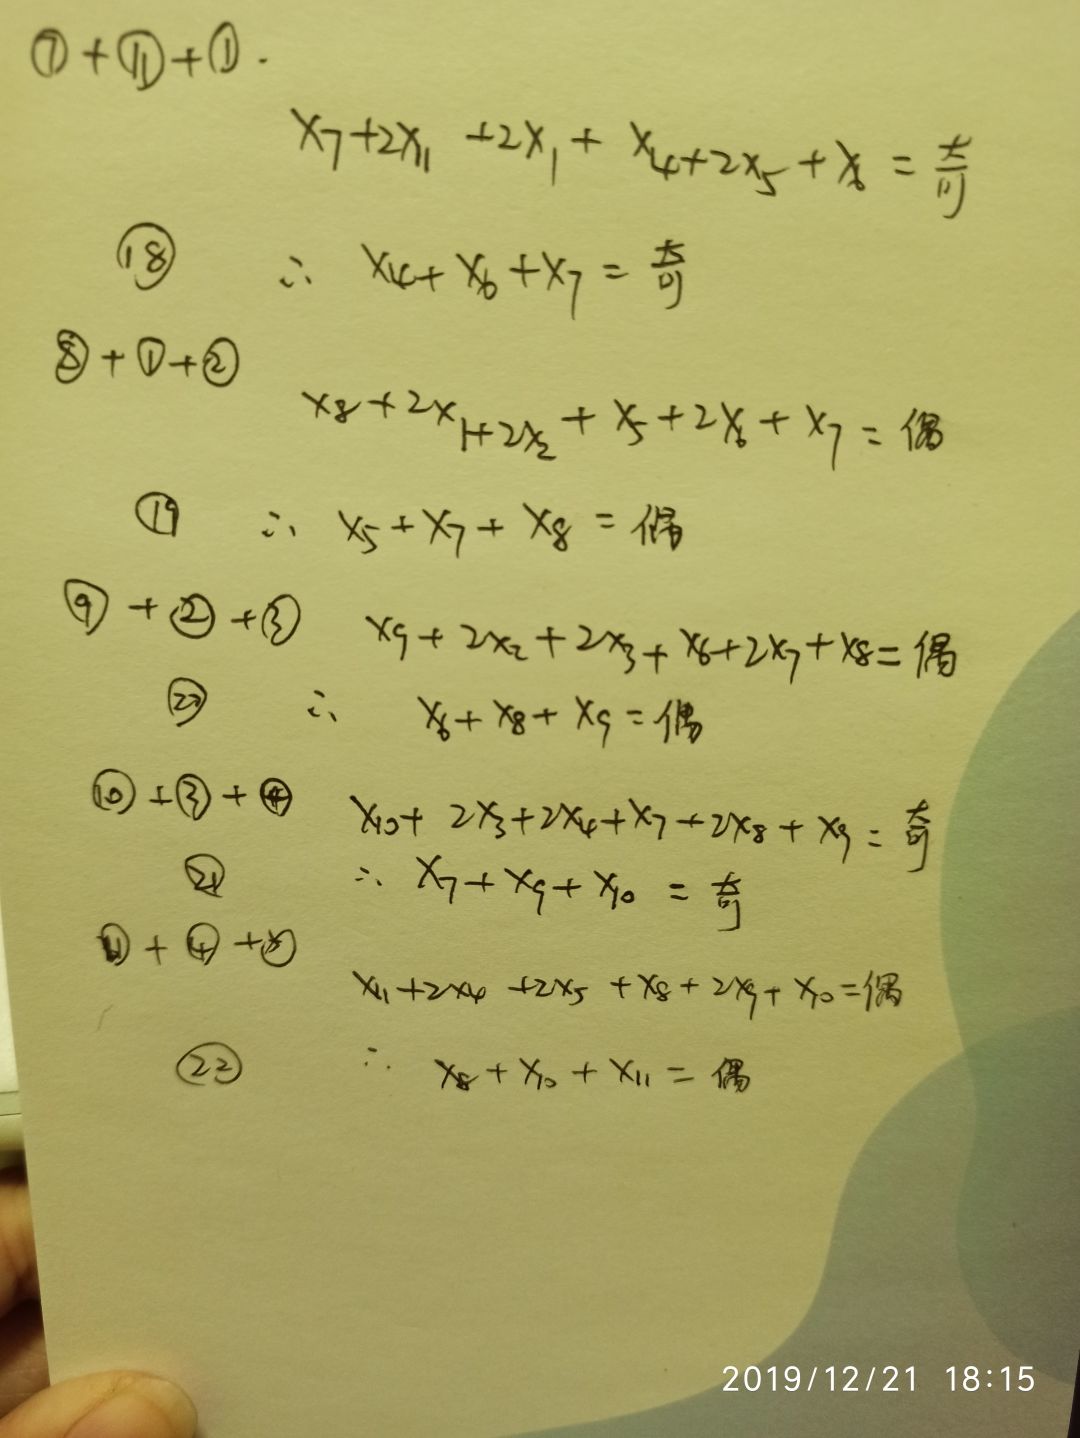 ⑦+⑪+①.
x₇+2x₁₁+2x₁+x₄+2x₅+x₆=奇
⑱ ∴ x₄+x₆+x₇=奇
⑧+①+②
x₈+2x₁+2x₂+x₅+2x₆+x₇=偶
⑲ ∴ x₅+x₇+x₈=偶
⑨+②+③ x₉+2x₂+2x₃+x₆+2x₇+x₈=偶
⑳ ∴ x₆+x₈+x₉=偶
⑩+③+④ x₁₀+2x₃+2x₄+x₇+2x₈+x₉=奇
㉑ ∴ x₇+x₉+x₁₀=奇
⑪+④+⑤
x₁₁+2x₄+2x₅+x₈+2x₉+x₁₀=偶
㉒ ∴ x₈+x₁₀+x₁₁=偶
2019/12/21 18:15